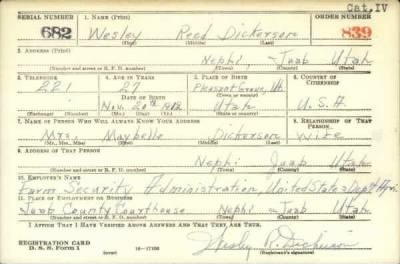 Cat. IV
SERIAL NUMBER 1. NAME (Print) ORDER NUMBER
682 Wesley Reed Dickerson 839
(First) (Middle) (Last)
2. ADDRESS (Print)
Nephi, Juab Utah
(Number and street or R. F. D. number) (Town) (County) (State)
3. TELEPHONE 4. AGE IN YEARS 5. PLACE OF BIRTH 6. COUNTRY OF CITIZENSHIP
221 27 Pleasant Grove, Ut.
DATE OF BIRTH (Town or county)
Nov. 20th 1912 Utah U.S.A
(Exchange) (Number) (Mo.) (Day) (Yr.) (State or country)
7. NAME OF PERSON WHO WILL ALWAYS KNOW YOUR ADDRESS 8. RELATIONSHIP OF THAT PERSON
Mrs. Maybelle Dickerson Wife
(Mr., Mrs., Miss) (First) (Middle) (Last)
9. ADDRESS OF THAT PERSON
Nephi Juab Utah
(Number and street or R. F. D. number) (Town) (County) (State)
10. EMPLOYER'S NAME
Farm Security Administration, United States Dept Agri.
11. PLACE OF EMPLOYMENT OR BUSINESS
Juab County Courthouse Nephi Juab Utah
(Number and street or R. F. D. number) (Town) (County) (State)
I AFFIRM THAT I HAVE VERIFIED ABOVE ANSWERS AND THAT THEY ARE TRUE.
REGISTRATION CARD
D. S. S. Form 1 (over) 16-17105 Wesley R. Dickerson
(Registrant's signature)